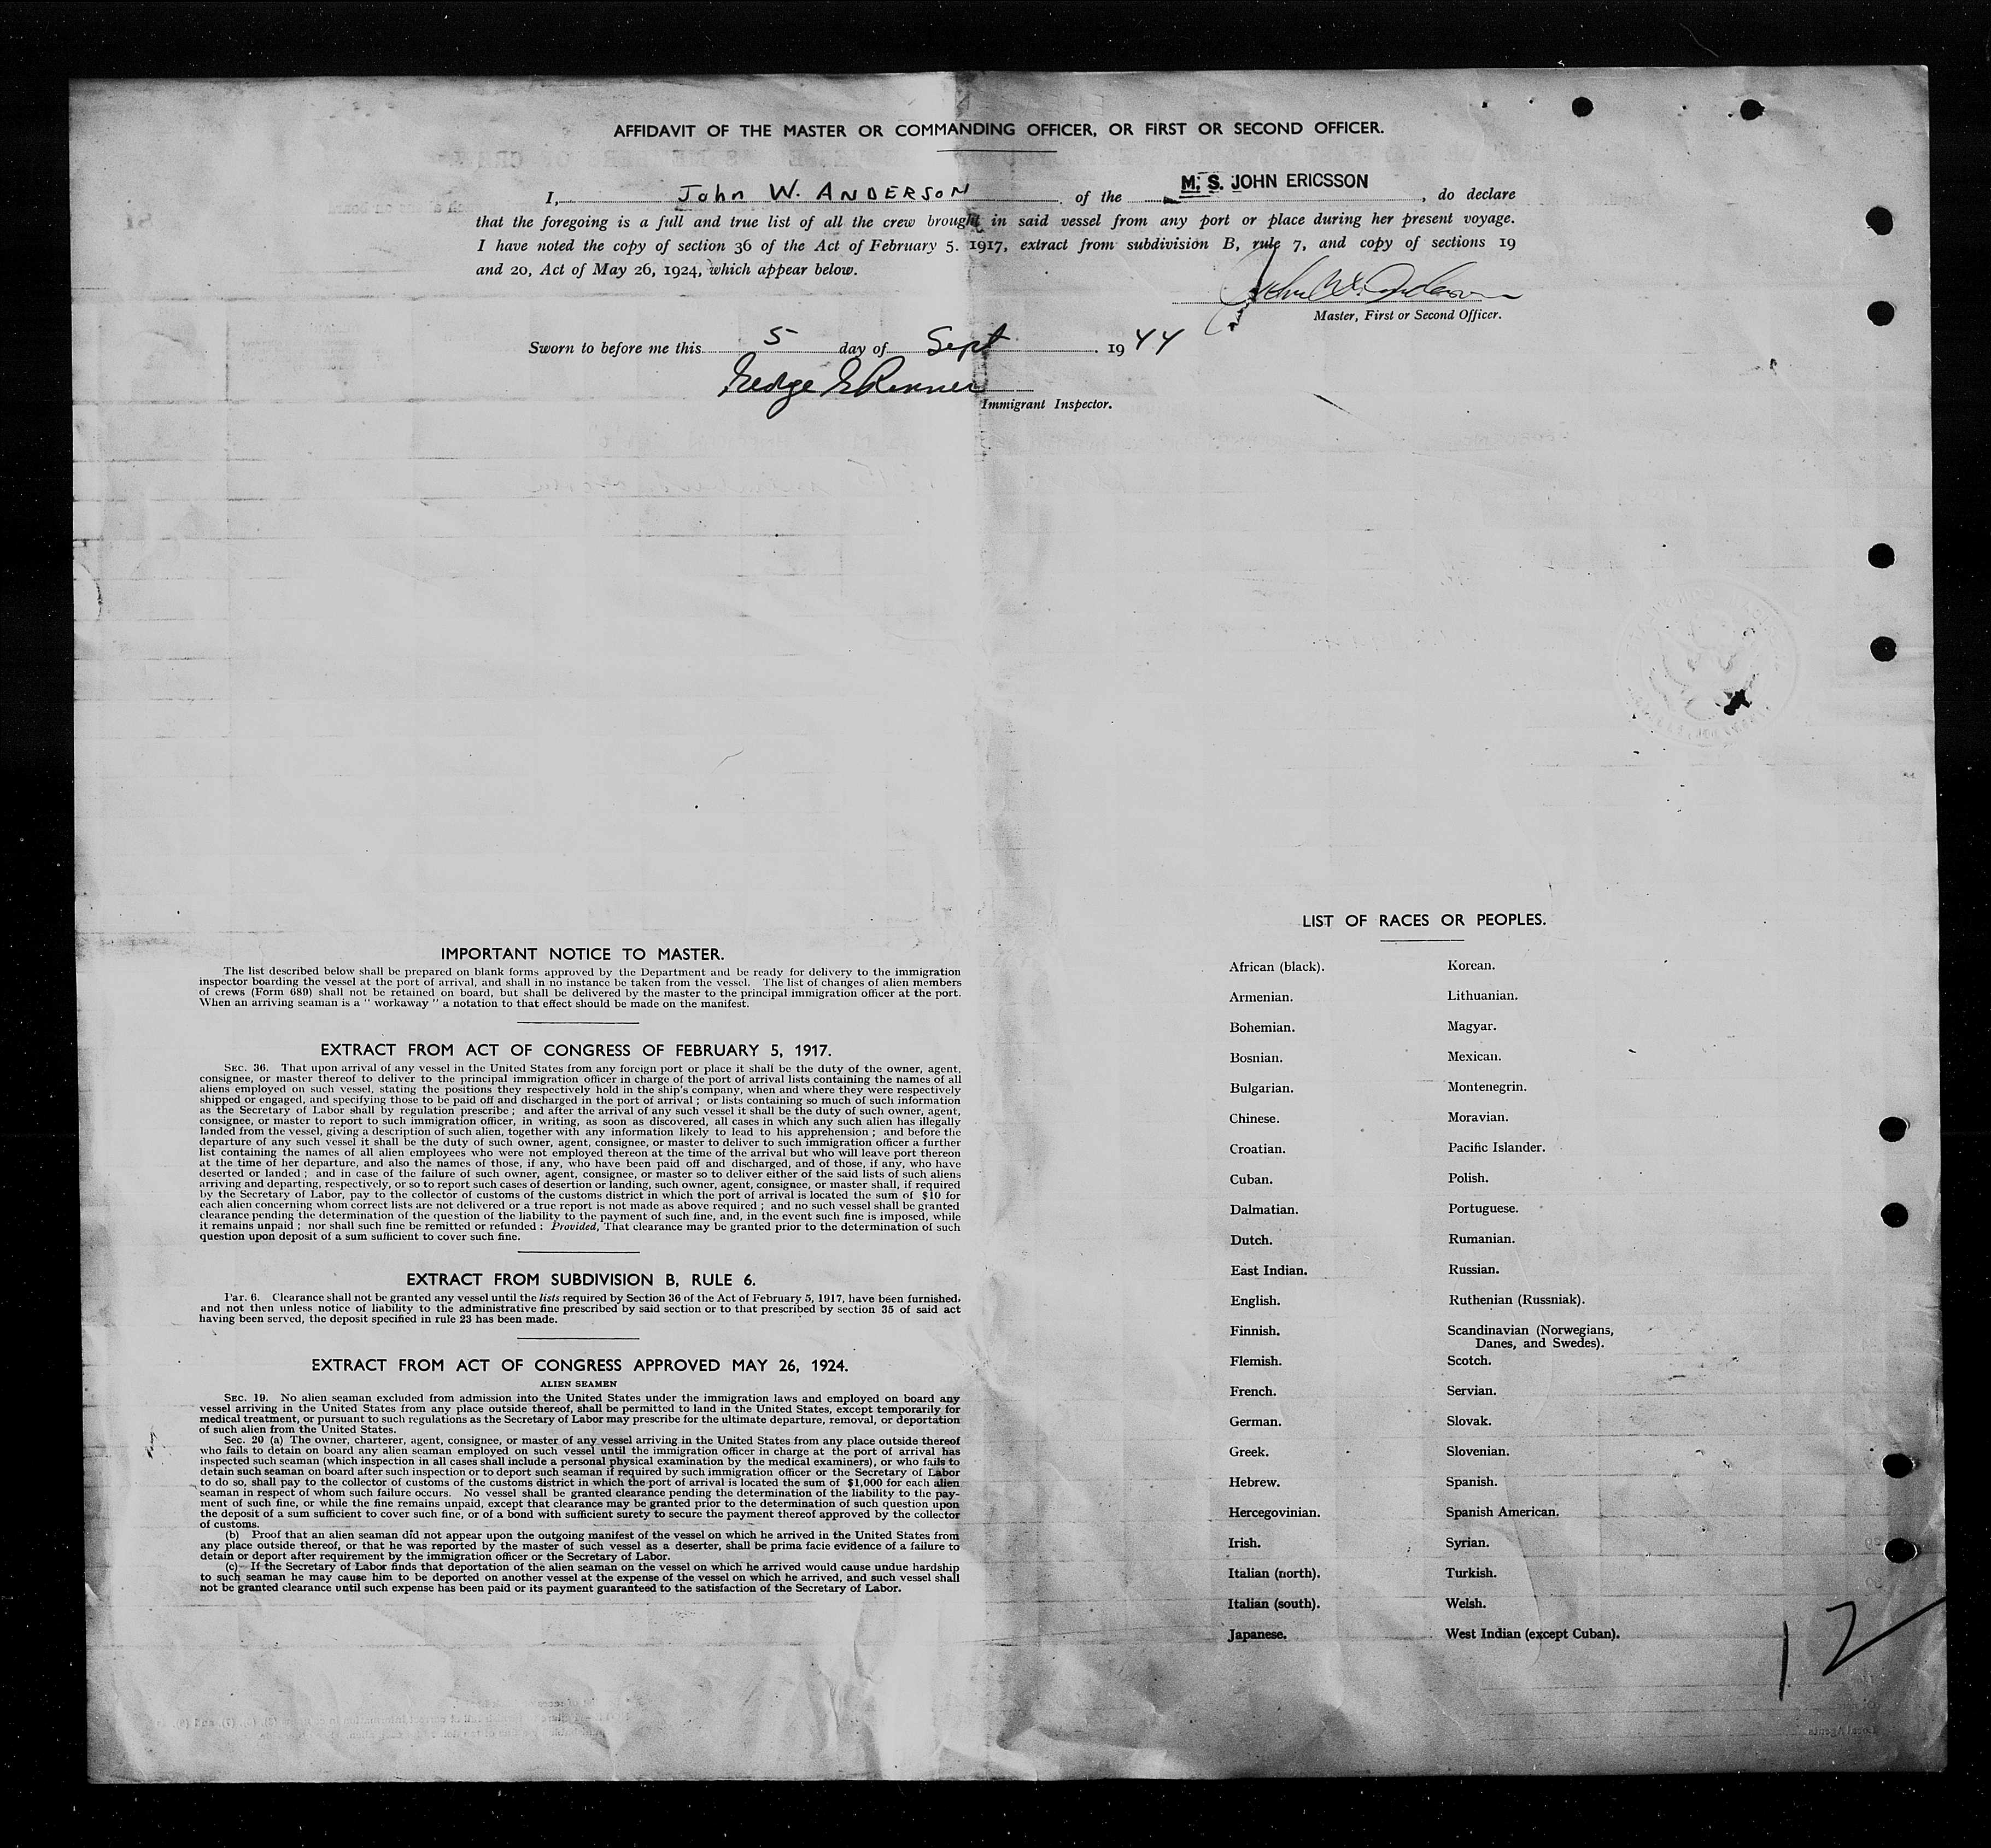 AFFIDAVIT OF THE MASTER OR COMMANDING OFFICER, OR FIRST OR SECOND OFFICER.
I, John W. ANDERSON of the M. S. JOHN ERICSSON, do declare
that the foregoing is a full and true list of all the crew brought in said vessel from any port or place during her present voyage.
I have noted the copy of section 36 of the Act of February 5. 1917, extract from subdivision B, rule 7, and copy of sections 19
and 20, Act of May 26, 1924, which appear below.
John W. Anderson
Master, First or Second Officer.
Sworn to before me this 5 day of Sept 1944
George E Renner
Immigrant Inspector.
IMPORTANT NOTICE TO MASTER.
The list described below shall be prepared on blank forms approved by the Department and be ready for delivery to the immigration
inspector boarding the vessel at the port of arrival, and shall in no instance be taken from the vessel. The list of changes of alien members
of crews (Form 689) shall not be retained on board, but shall be delivered by the master to the principal immigration officer at the port.
When an arriving seaman is a " workaway " a notation to that effect should be made on the manifest.
EXTRACT FROM ACT OF CONGRESS OF FEBRUARY 5, 1917.
SEC. 36. That upon arrival of any vessel in the United States from any foreign port or place it shall be the duty of the owner, agent,
consignee, or master thereof to deliver to the principal immigration officer in charge of the port of arrival lists containing the names of all
aliens employed on such vessel, stating the positions they respectively hold in the ship's company, when and where they were respectively
shipped or engaged, and specifying those to be paid off and discharged in the port of arrival ; or lists containing so much of such information
as the Secretary of Labor shall by regulation prescribe ; and after the arrival of any such vessel it shall be the duty of such owner, agent,
consignee, or master to report to such immigration officer, in writing, as soon as discovered, all cases in which any such alien has illegally
landed from the vessel, giving a description of such alien, together with any information likely to lead to his apprehension ; and before the
departure of any such vessel it shall be the duty of such owner, agent, consignee, or master to deliver to such immigration officer a further
list containing the names of all alien employees who were not employed thereon at the time of the arrival but who will leave port thereon
at the time of her departure, and also the names of those, if any, who have been paid off and discharged, and of those, if any, who have
deserted or landed ; and in case of the failure of such owner, agent, consignee, or master so to deliver either of the said lists of such aliens
arriving and departing, respectively, or so to report such cases of desertion or landing, such owner, agent, consignee, or master shall, if required
by the Secretary of Labor, pay to the collector of customs of the customs district in which the port of arrival is located the sum of $10 for
each alien concerning whom correct lists are not delivered or a true report is not made as above required ; and no such vessel shall be granted
clearance pending the determination of the question of the liability to the payment of such fine, and, in the event such fine is imposed, while
it remains unpaid ; nor shall such fine be remitted or refunded : Provided, That clearance may be granted prior to the determination of such
question upon deposit of a sum sufficient to cover such fine.
EXTRACT FROM SUBDIVISION B, RULE 6.
Par. 6. Clearance shall not be granted any vessel until the lists required by Section 36 of the Act of February 5, 1917, have been furnished,
and not then unless notice of liability to the administrative fine prescribed by said section or to that prescribed by section 35 of said act
having been served, the deposit specified in rule 23 has been made.
EXTRACT FROM ACT OF CONGRESS APPROVED MAY 26, 1924.
ALIEN SEAMEN
SEC. 19. No alien seaman excluded from admission into the United States under the immigration laws and employed on board any
vessel arriving in the United States from any place outside thereof, shall be permitted to land in the United States, except temporarily for
medical treatment, or pursuant to such regulations as the Secretary of Labor may prescribe for the ultimate departure, removal, or deportation
of such alien from the United States.
Sec. 20 (a) The owner, charterer, agent, consignee, or master of any vessel arriving in the United States from any place outside thereof
who fails to detain on board any alien seaman employed on such vessel until the immigration officer in charge at the port of arrival has
inspected such seaman (which inspection in all cases shall include a personal physical examination by the medical examiners), or who fails to
detain such seaman on board after such inspection or to deport such seaman if required by such immigration officer or the Secretary of Labor
to do so, shall pay to the collector of customs of the customs district in which the port of arrival is located the sum of $1,000 for each alien
seaman in respect of whom such failure occurs. No vessel shall be granted clearance pending the determination of the liability to the pay-
ment of such fine, or while the fine remains unpaid, except that clearance may be granted prior to the determination of such question upon
the deposit of a sum sufficient to cover such fine, or of a bond with sufficient surety to secure the payment thereof approved by the collector
of customs.
(b) Proof that an alien seaman did not appear upon the outgoing manifest of the vessel on which he arrived in the United States from
any place outside thereof, or that he was reported by the master of such vessel as a deserter, shall be prima facie evidence of a failure to
detain or deport after requirement by the immigration officer or the Secretary of Labor.
(c) If the Secretary of Labor finds that deportation of the alien seaman on the vessel on which he arrived would cause undue hardship
to such seaman he may cause him to be deported on another vessel at the expense of the vessel on which he arrived, and such vessel shall
not be granted clearance until such expense has been paid or its payment guaranteed to the satisfaction of the Secretary of Labor.
LIST OF RACES OR PEOPLES.
African (black).
Armenian.
Bohemian.
Bosnian.
Bulgarian.
Chinese.
Croatian.
Cuban.
Dalmatian.
Dutch.
East Indian.
English.
Finnish.
Flemish.
French.
German.
Greek.
Hebrew.
Hercegovinian.
Irish.
Italian (north).
Italian (south).
Japanese.
Korean.
Lithuanian.
Magyar.
Mexican.
Montenegrin.
Moravian.
Pacific Islander.
Polish.
Portuguese.
Rumanian.
Russian.
Ruthenian (Russniak).
Scandinavian (Norwegians,
Danes, and Swedes).
Scotch.
Servian.
Slovak.
Slovenian.
Spanish.
Spanish American.
Syrian.
Turkish.
Welsh.
West Indian (except Cuban).
12